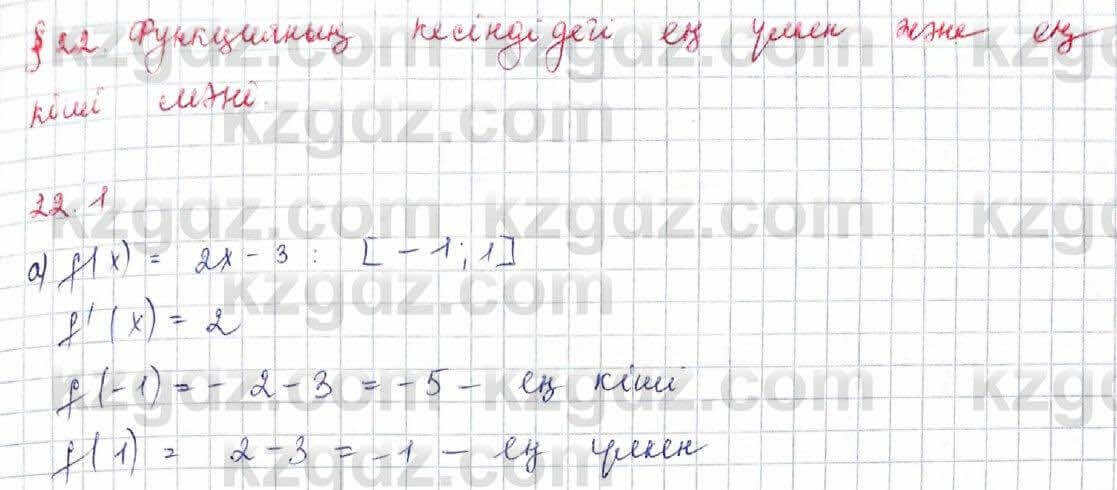 § 22. Функцияның кесіндідегі ең үлкен және ең
кіші мәні.
22.1
а) f(x) = 2x - 3 : [-1; 1]
f'(x) = 2
f(-1) = - 2 - 3 = -5 - ең кіші
f(1) = 2 - 3 = -1 - ең үлкен
kzgdz.com